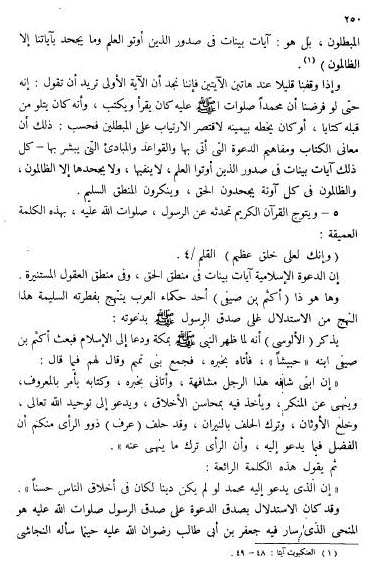 ٢٥٠
المبطلون ، بل هو : آيات بينات فى صدور الذين أوتوا العلم وما يجحد بآياتنا إلا
الظالمون » (١) .
وإذا وقفنا قليلا عند هاتين الآيتين فإننا نجد أن الآية الأولى تريد أن تقول : إنه
حتى لو فرضنا أن محمداً صلوات الله عليه كان يقرأ ويكتب ، وأنه كان يتلو من
قبله كتابا ، أو كان يخطه بيمينه لاقتصر الارتياب على المبطلين فحسب : ذلك أن
معانى الكتاب ومفاهيم الدعوة التى أتى بها والقواعد والمبادئ التى يبشر بها – كل
ذلك آيات بينات فى صدور الذين أوتوا العلم ، لا ينفيها ، ولا يجحدها إلا الظالمون ،
والظالمون فى كل آونة يجحدون الحق ، وينكرون المنطق السليم .
٥ – ويتوج القرآن الكريم تحدثه عن الرسول ، صلوات الله عليه ، بهذه الكلمة
العميقة :
( وإنك لعلى خلق عظيم ) القلم /٤ .
إن الدعوة الإسلامية آيات بينات فى منطق الحق ، وفى منطق العقول المستنيرة .
وها هو ذا ( أكثم بن صيفى ) أحد حكماء العرب ينتهج بفطرته السليمة هذا
النهج من الاستدلال على صدق الرسول ﷺ بدعوته :
يذكر ( الألوسى ) أنه لما ظهر النبى ﷺ بمكة ودعا إلى الإسلام فبعث أكثم بن
صيفى ابنه « حبيشاً » ، فأتاه بخبره ، فجمع بنى تميم وقال لهم فيما قال :
« إن ابنى شافه هذا الرجل مشافهة ، وأتانى بخبره ، وكتابه يأمر بالمعروف ،
وينهى عن المنكر ، ويأخذ فيه بمحاسن الأخلاق ، ويدعو إلى توحيد الله تعالى ،
وخلع الأوثان ، وترك الحلف بالنيران ، وقد حلف ( عرف ) ذوو الرأى منكم أن
الفضل فيما يدعو إليه ، وأن الرأى ترك ما ينهى عنه » .
ثم يقول هذه الكلمة الرائعة :
« إن الذى يدعو إليه محمد لو لم يكن دينا لكان فى أخلاق الناس حسناً » .
وقد كان الاستدلال بصدق الدعوة على صدق الرسول صلوات الله عليه هو
المنحى الذى سار فيه جعفر بن أبى طالب رضوان الله عليه حينما سأله النجاشى
( ١ ) العنكبوت آيتا : ٤٨ – ٤٩ .